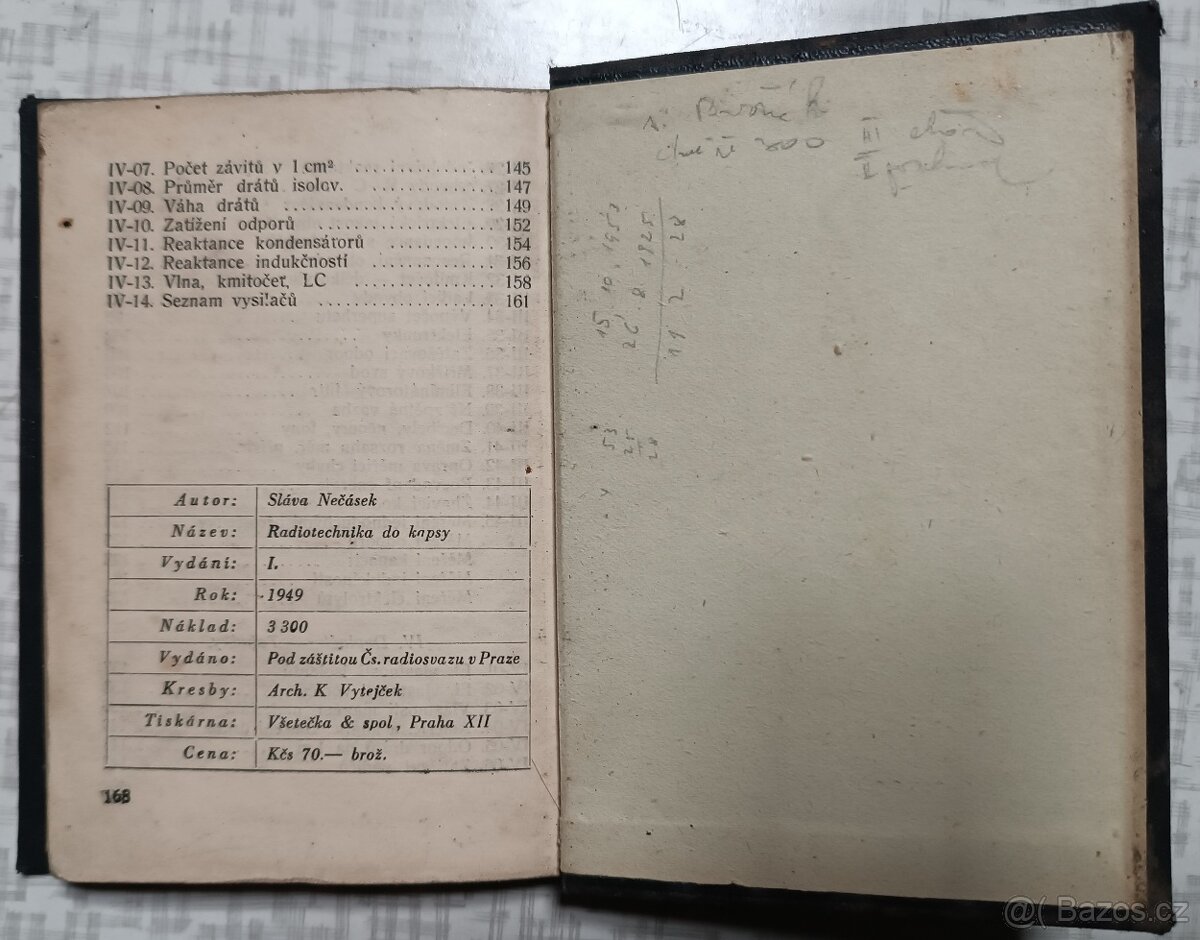 IV-07. Počet závitů v 1 cm² ................ 145
IV-08. Průměr drátů isolov. ............... 147
IV-09. Váha drátů ........................ 149
IV-10. Zatížení odporů .................... 152
IV-11. Reaktance kondensátorů ............ 154
IV-12. Reaktance indukčností .............. 156
IV-13. Vlna, kmitočet, LC ................ 158
IV-14. Seznam vysilačů .................... 161
Autor: Sláva Nečásek
Název: Radiotechnika do kapsy
Vydání: I.
Rok: 1949
Náklad: 3 300
Vydáno: Pod záštitou Čs. radiosvazu v Praze
Kresby: Arch. K Vytejček
Tiskárna: Všetečka & spol, Praha XII
Cena: Kčs 70.— brož.
168
III
II
15 10 1953
26 8 1925
11 2 28
53
25
28
@( Bazos.cz